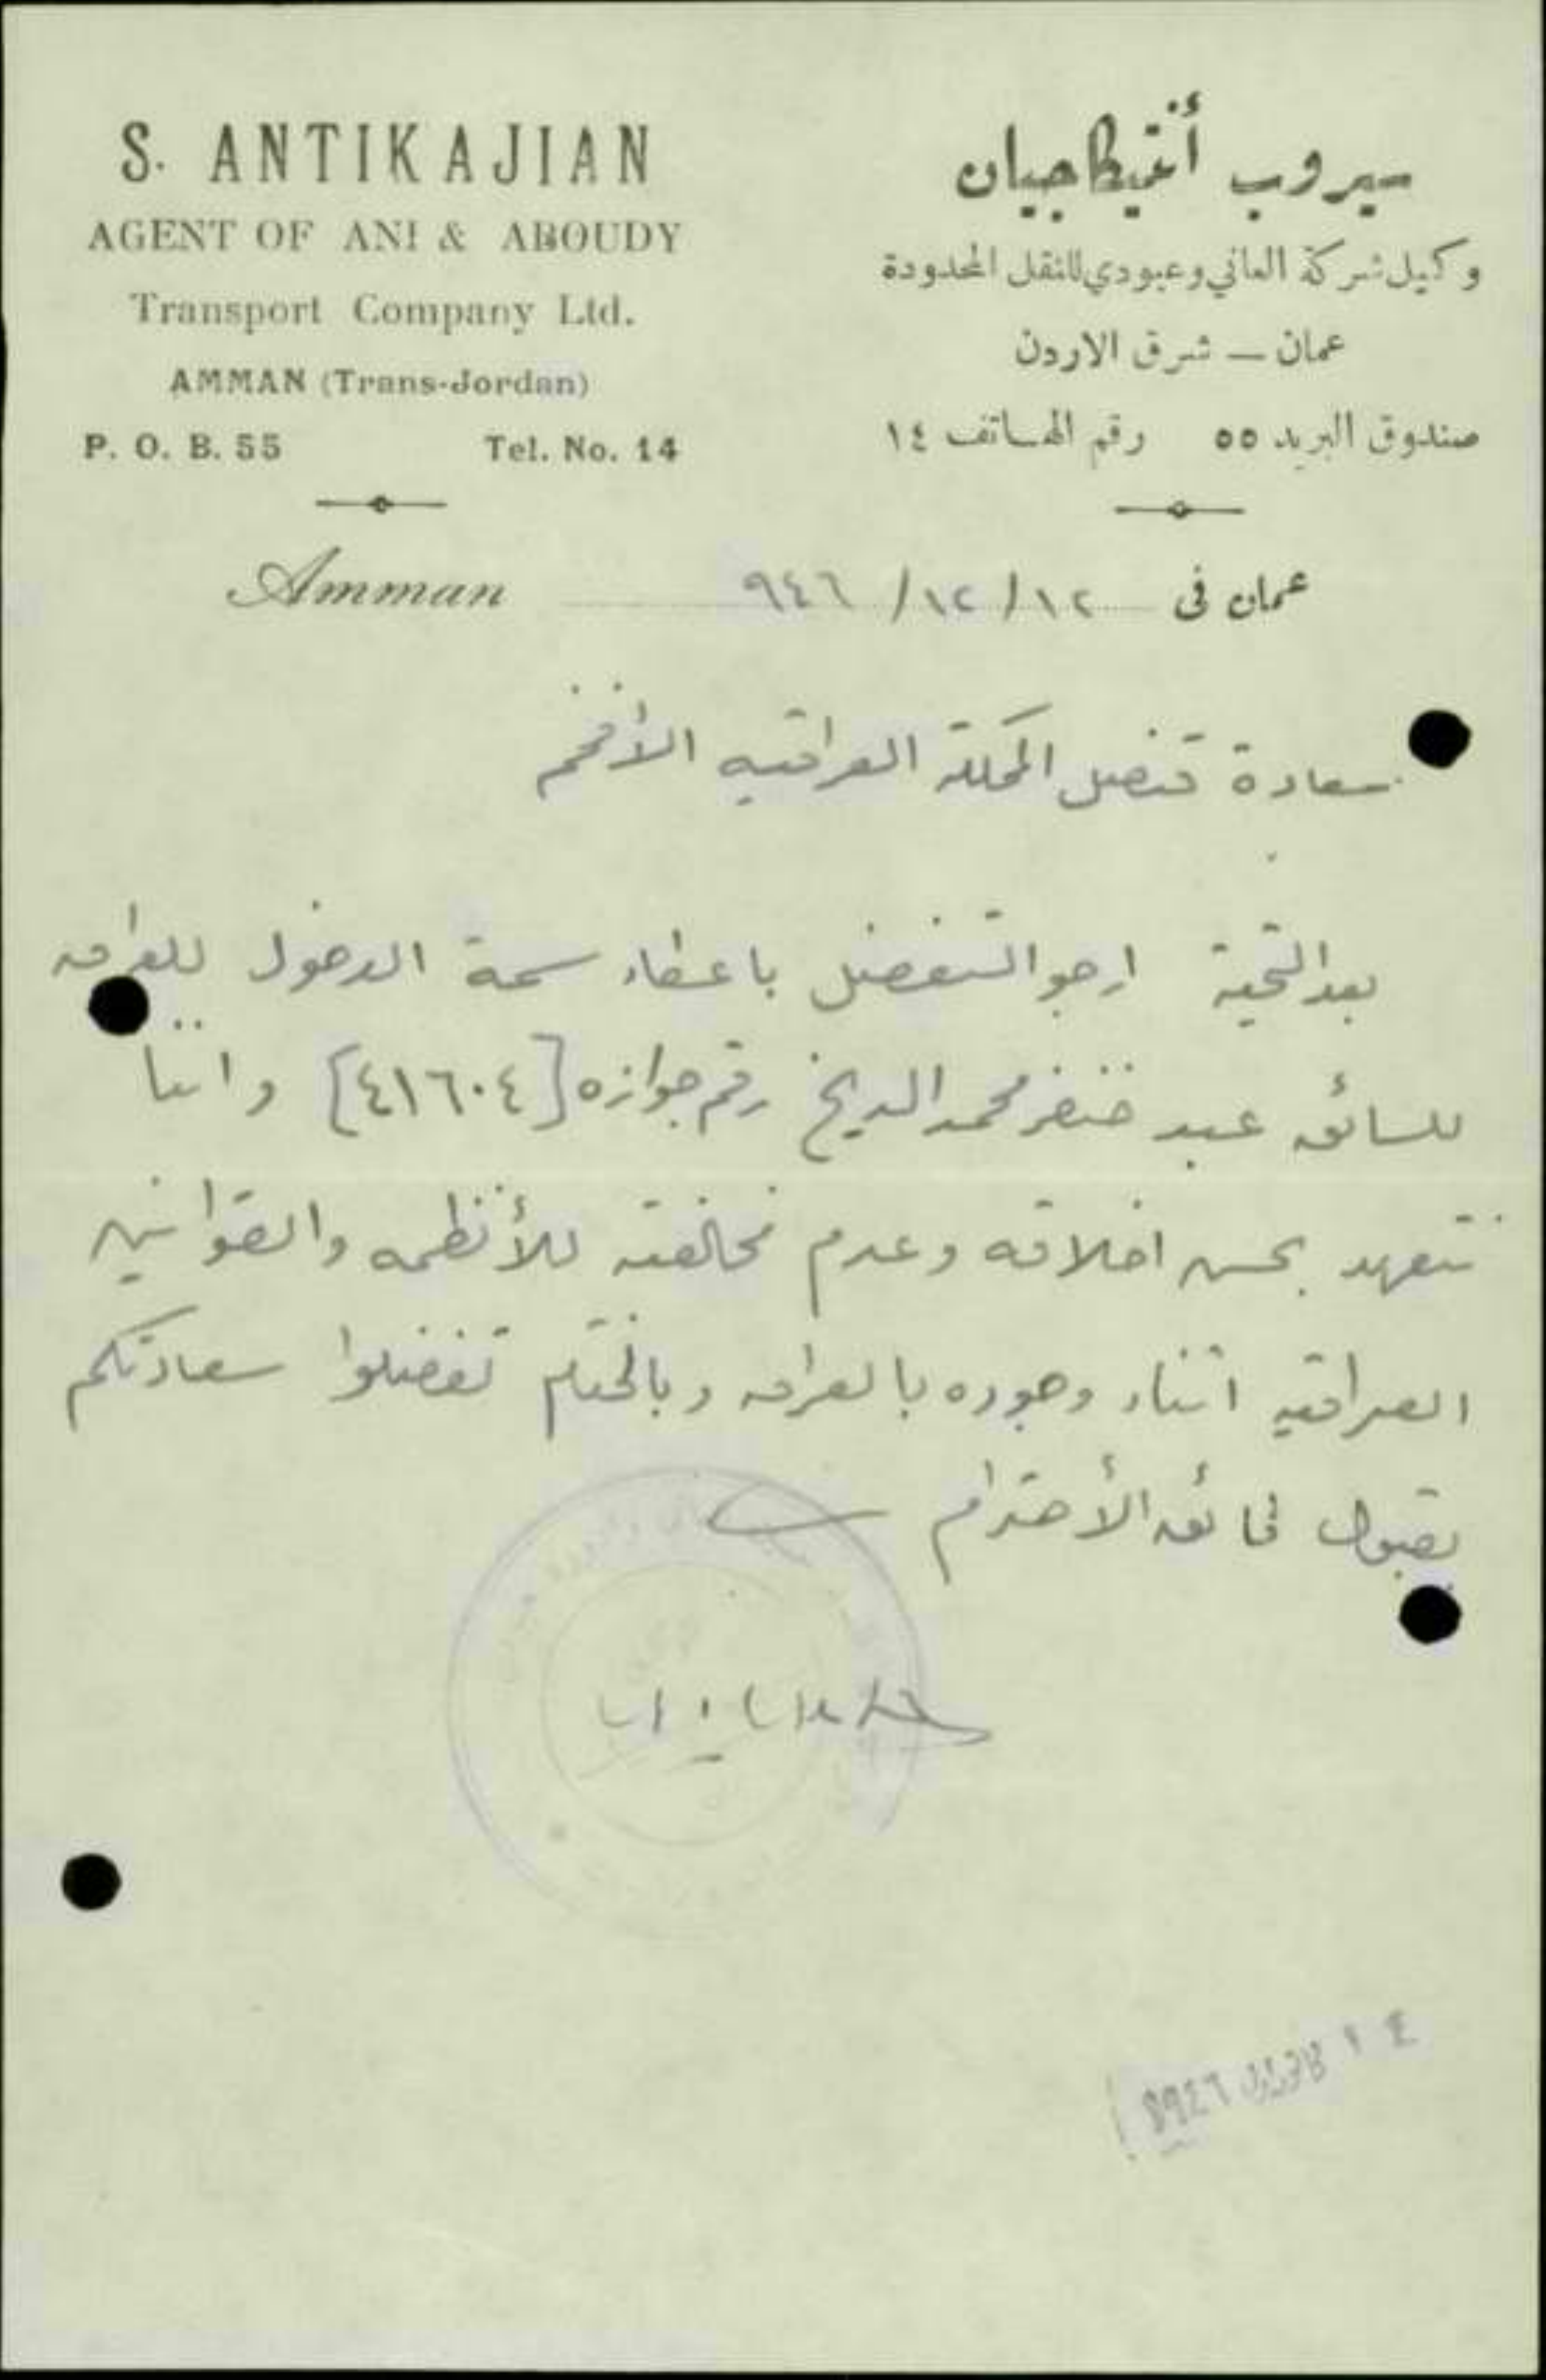 S. ANTIKAJIAN
AGENT OF ANI & ABOUDY
Transport Company Ltd.
AMMAN (Trans-Jordan)
P. O. B. 55 Tel. No. 14
سيروب أنتيكاجيان
وكيل شركة العاني وعبودي للنقل المحدودة
عمان — شرق الاردن
صندوق البريد ٥٥ رقم الهاتف ١٤
Amman
عمان في ١٢/١٢/٩٤٦
سعادة قنصل المملكة العراقيه الأفخم
بعد التحية ارجو التفضل باعطاء سمة الدخول للعراق
للسائق عبد خضر محمد رقم جوازه [٤١٦٠٤] واننا
نتعهد بحسن اخلاقه وعدم مخالفته للأنظمه والقوانين
العراقيه اثناء وجوده بالعراق وبالختام تفضلوا سعادتكم
بقبول فائق الأحترام